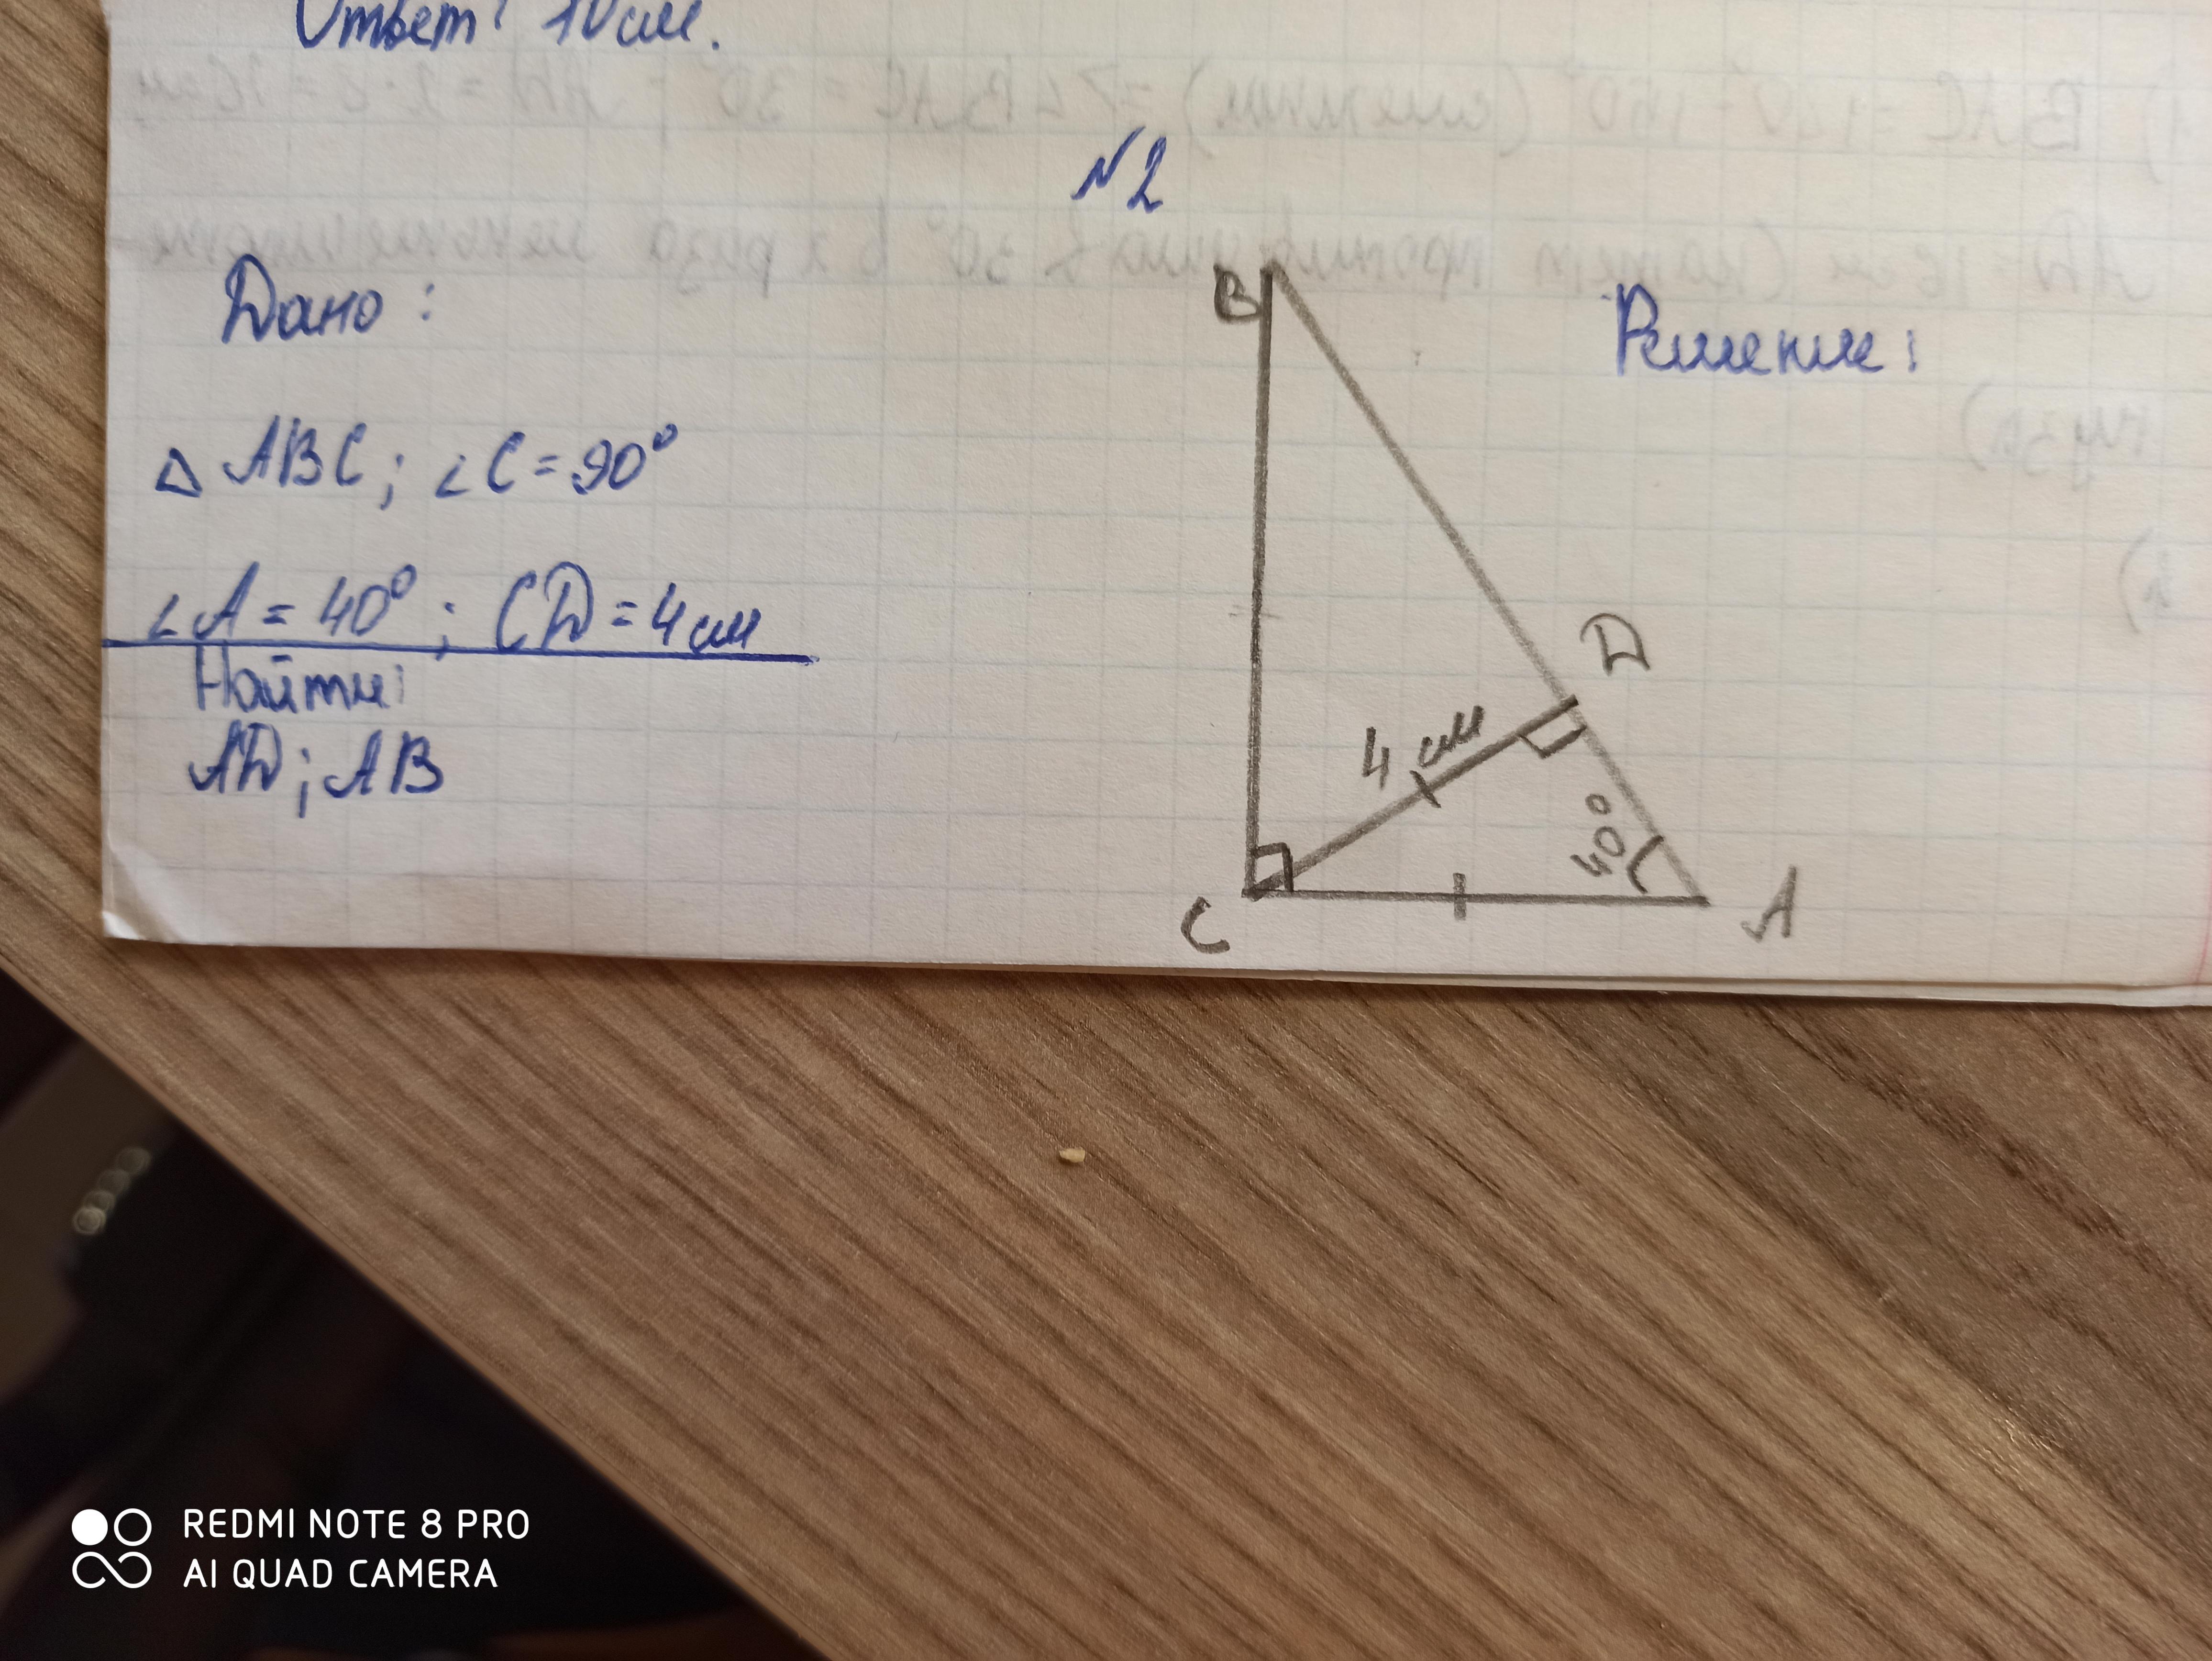 Ответ: 10 см.
N2
Дано:
△ ABC; ∠C=90°
∠A = 40°; CD = 4 см
Найти:
AD; AB
Решение:
B
D
4 см
40°
C
A
REDMI NOTE 8 PRO
AI QUAD CAMERA